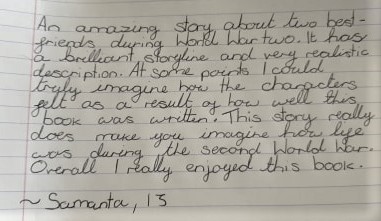 An amazing story about two best-
friends during World War two. It has
a brilliant storyline and very realistic
description. At some points I could
truly imagine how the characters
felt as a result of how well this
book was written. This story really
does make you imagine how life
was during the second World War.
Overall I really enjoyed this book.
~ Samanta, 13